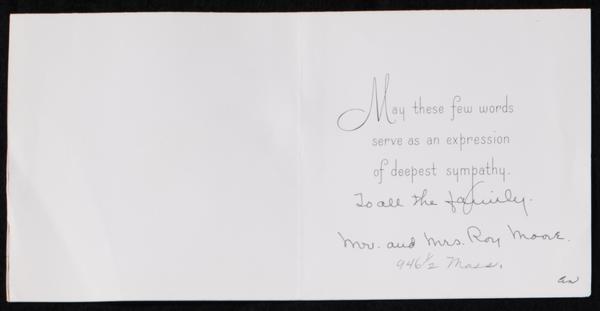 May these few words
serve as an expression
of deepest sympathy.
To all the family.
Mr. and Mrs. Roy Moore.
946 1/2 Mass.